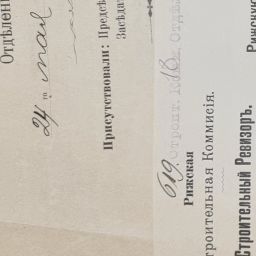 Отдѣлені
24 го мая
Присутствовали: Предсѣ
Засѣдат
Строит. Отдѣл
18
619
Рижская
троительная Коммисія.
Строительный Ревизоръ.
Рижскую